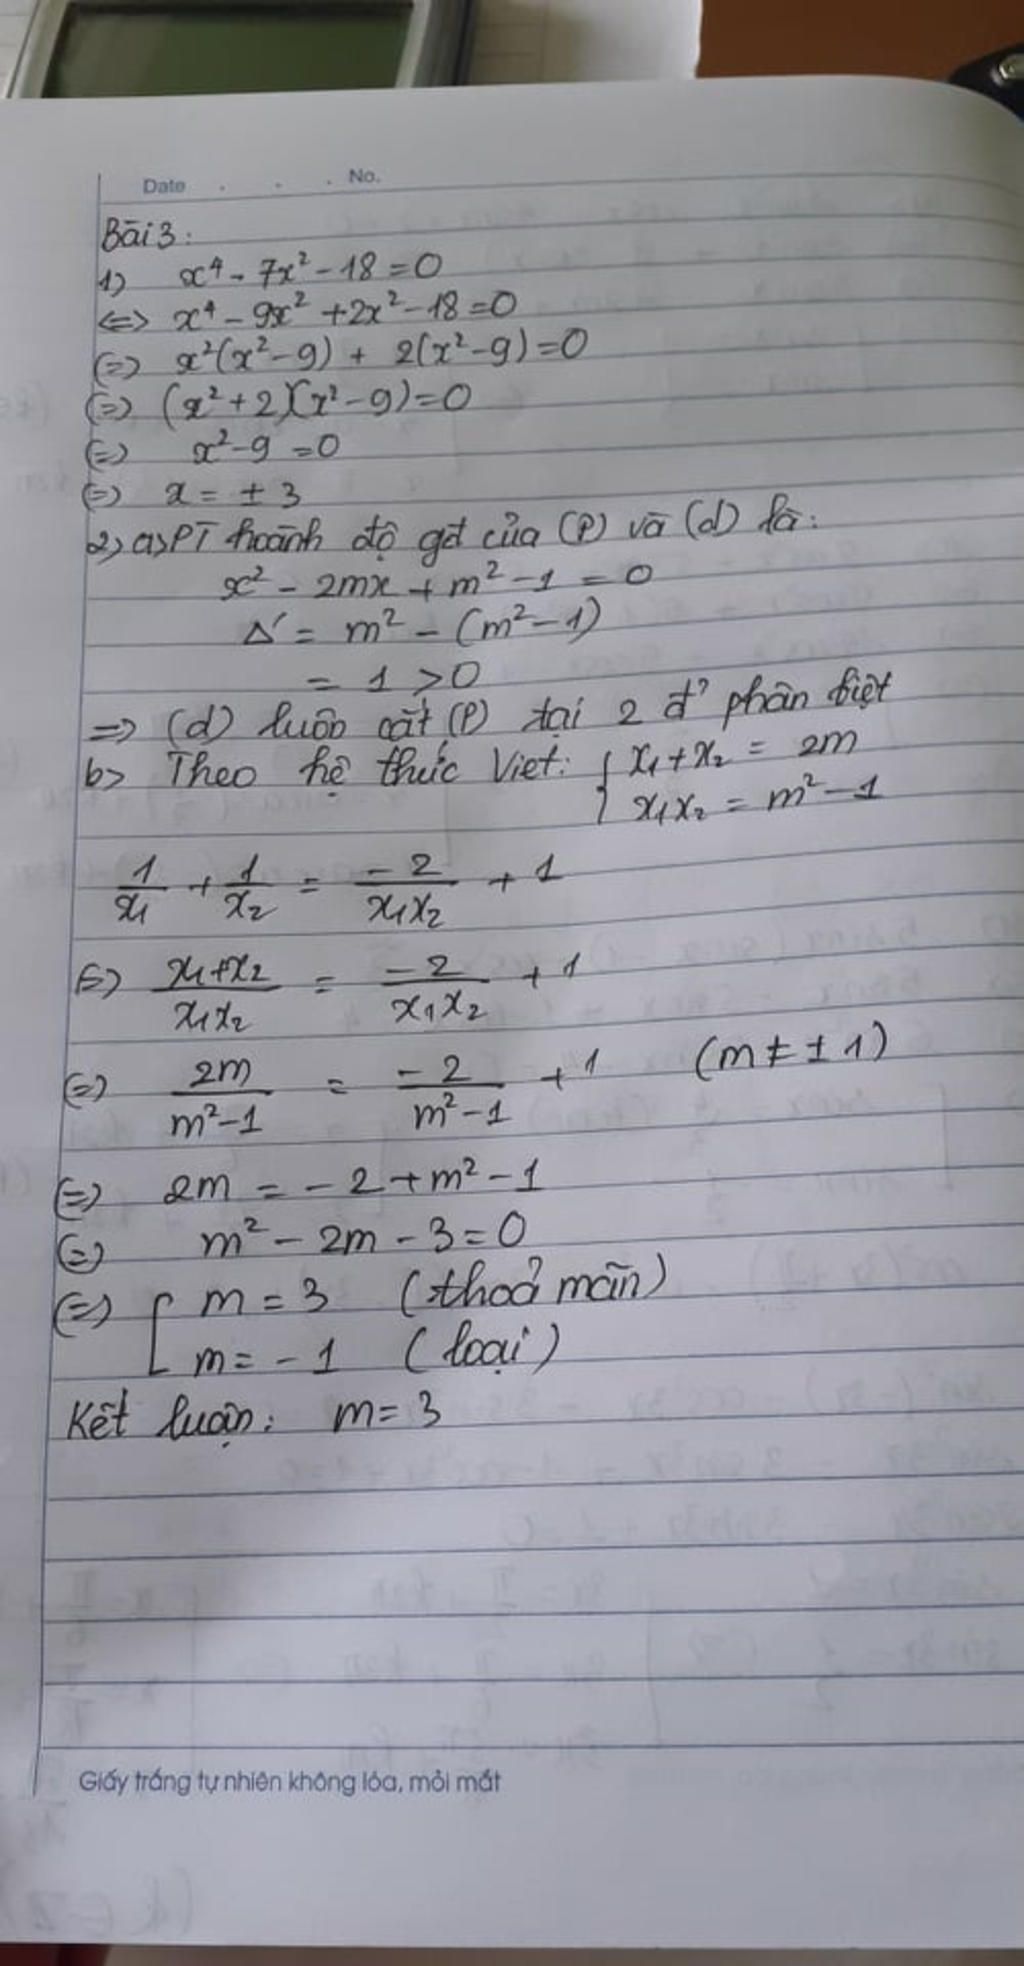 Date . . . No.
Bài 3:
1) x⁴ - 7x² - 18 = 0
<=> x⁴ - 9x² + 2x² - 18 = 0
(=) x²(x² - 9) + 2(x² - 9) = 0
(=) (x² + 2)(x² - 9) = 0
(=) x² - 9 = 0
(=) x = ± 3
2) a) PT hoành độ gđ của (P) và (d) là:
x² - 2mx + m² - 1 = 0
Δ' = m² - (m² - 1)
= 1 > 0
=> (d) luôn cắt (P) tại 2 đ' phân biệt
b) Theo hệ thức Viet: { x₁ + x₂ = 2m
x₁x₂ = m² - 1
1/x₁ + 1/x₂ = -2/x₁x₂ + 1
(=) x₁+x₂/x₁x₂ = -2/x₁x₂ + 1
(=) 2m/m²-1 = -2/m²-1 + 1 (m ≠ ± 1)
(=) 2m = -2 + m² - 1
(=) m² - 2m - 3 = 0
(=) [ m = 3 (thoả mãn)
m = -1 (loại)
Kết luận: m = 3
Giấy trắng tự nhiên không lóa, mỏi mắt